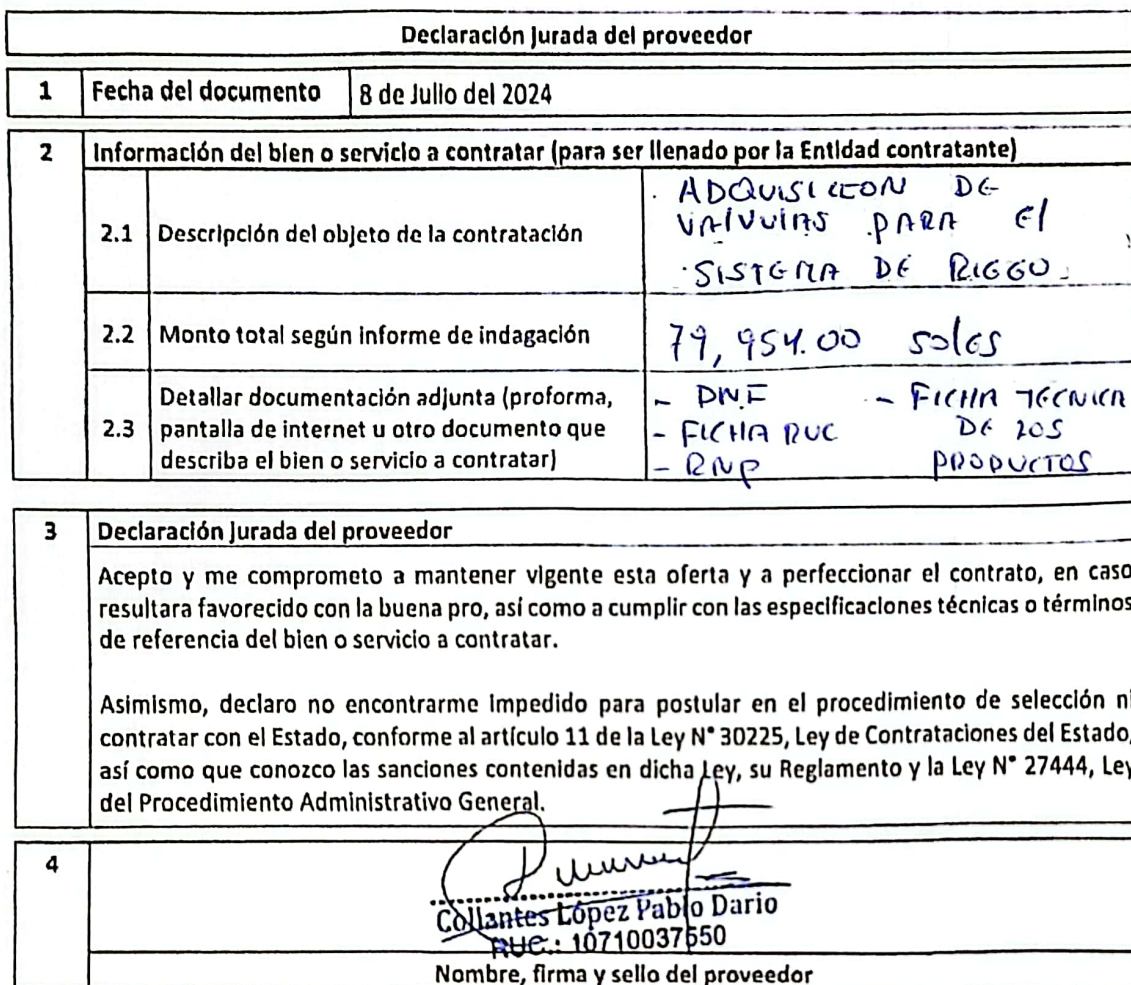 Declaración Jurada del proveedor
1 Fecha del documento 8 de Julio del 2024
2 Información del bien o servicio a contratar (para ser llenado por la Entidad contratante)
2.1 Descripción del objeto de la contratación
ADQUISICION DE
VALVULAS PARA El
SISTEMA DE RIEGO.
2.2 Monto total según informe de indagación
79,954.00 soles
2.3 Detallar documentación adjunta (proforma,
pantalla de internet u otro documento que
describa el bien o servicio a contratar)
- FICHA RUC
- RNP
- FICHA TECNICA
DE LOS
PRODUCTOS
3 Declaración Jurada del proveedor
Acepto y me comprometo a mantener vigente esta oferta y a perfeccionar el contrato, en caso
resultara favorecido con la buena pro, así como a cumplir con las especificaciones técnicas o términos
de referencia del bien o servicio a contratar.
Asimismo, declaro no encontrarme impedido para postular en el procedimiento de selección ni
contratar con el Estado, conforme al artículo 11 de la Ley N° 30225, Ley de Contrataciones del Estado,
así como que conozco las sanciones contenidas en dicha Ley, su Reglamento y la Ley N° 27444, Ley
del Procedimiento Administrativo General.
4
Collantes López Pablo Dario
RUC.: 10710037550
Nombre, firma y sello del proveedor